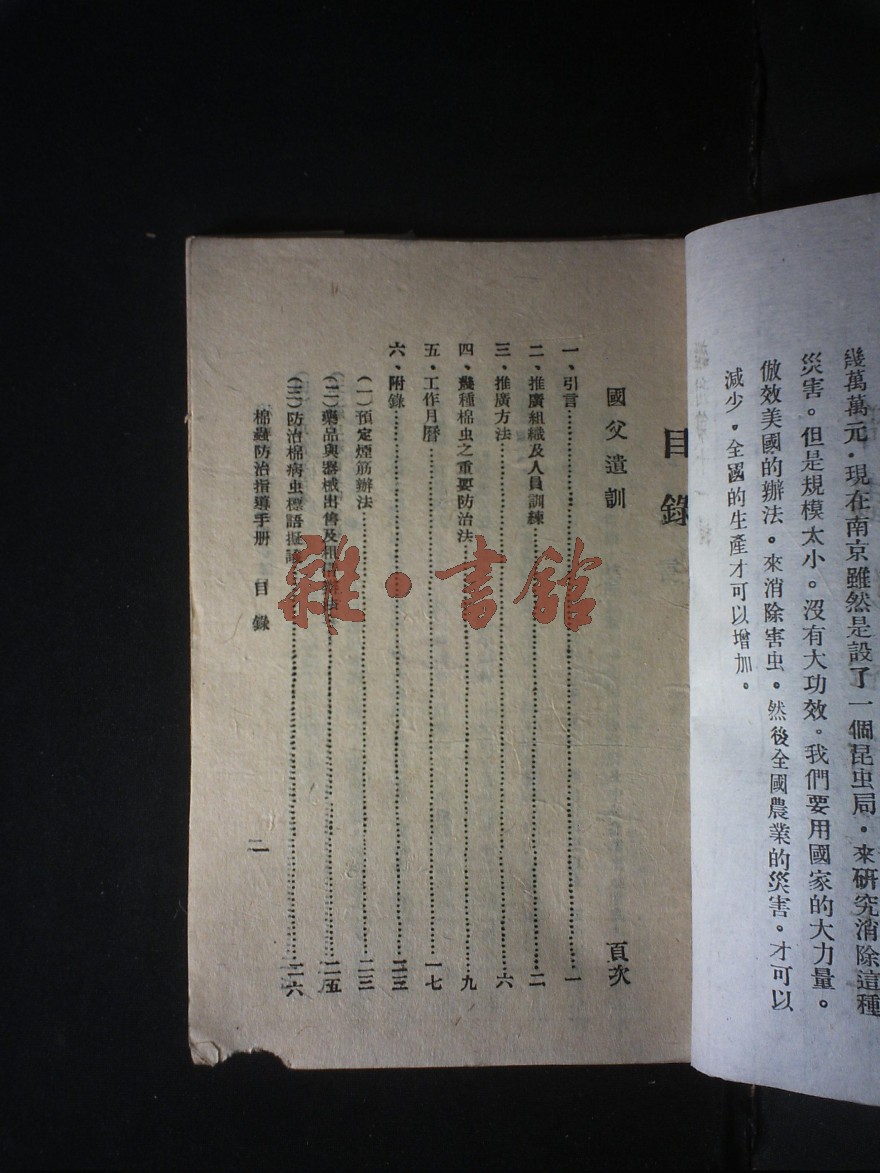 幾萬萬元．現在南京雖然是設了一個昆虫局．來研究消除這種
災害。但是規模太小。沒有大功效。我們要用國家的大力量。
倣效美國的辦法。來消除害虫．然後全國農業的災害．才可以
減少．全國的生產才可以增加。
目錄
國父遺訓 頁次
一、引言……一
二、推廣組織及人員訓練……二
三、推廣方法……六
四、幾種棉虫之重要防治法……九
五、工作月曆……一七
六、附錄……二三
（一）預定煙筋辦法……二三
（二）藥品與器械出售及租借辦法……二五
（三）防治棉病虫標語……二六
棉蟲防治指導手册 目錄 二
雜·書館